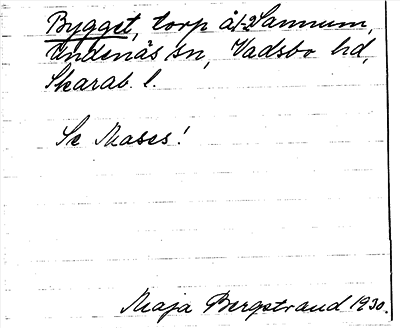 Bygget, torp å 1-2 Sannum,
Undenäs sn, Vadsbo hd,
Skarab. l.
Se Moses!
Maja Bergstrand 1930.